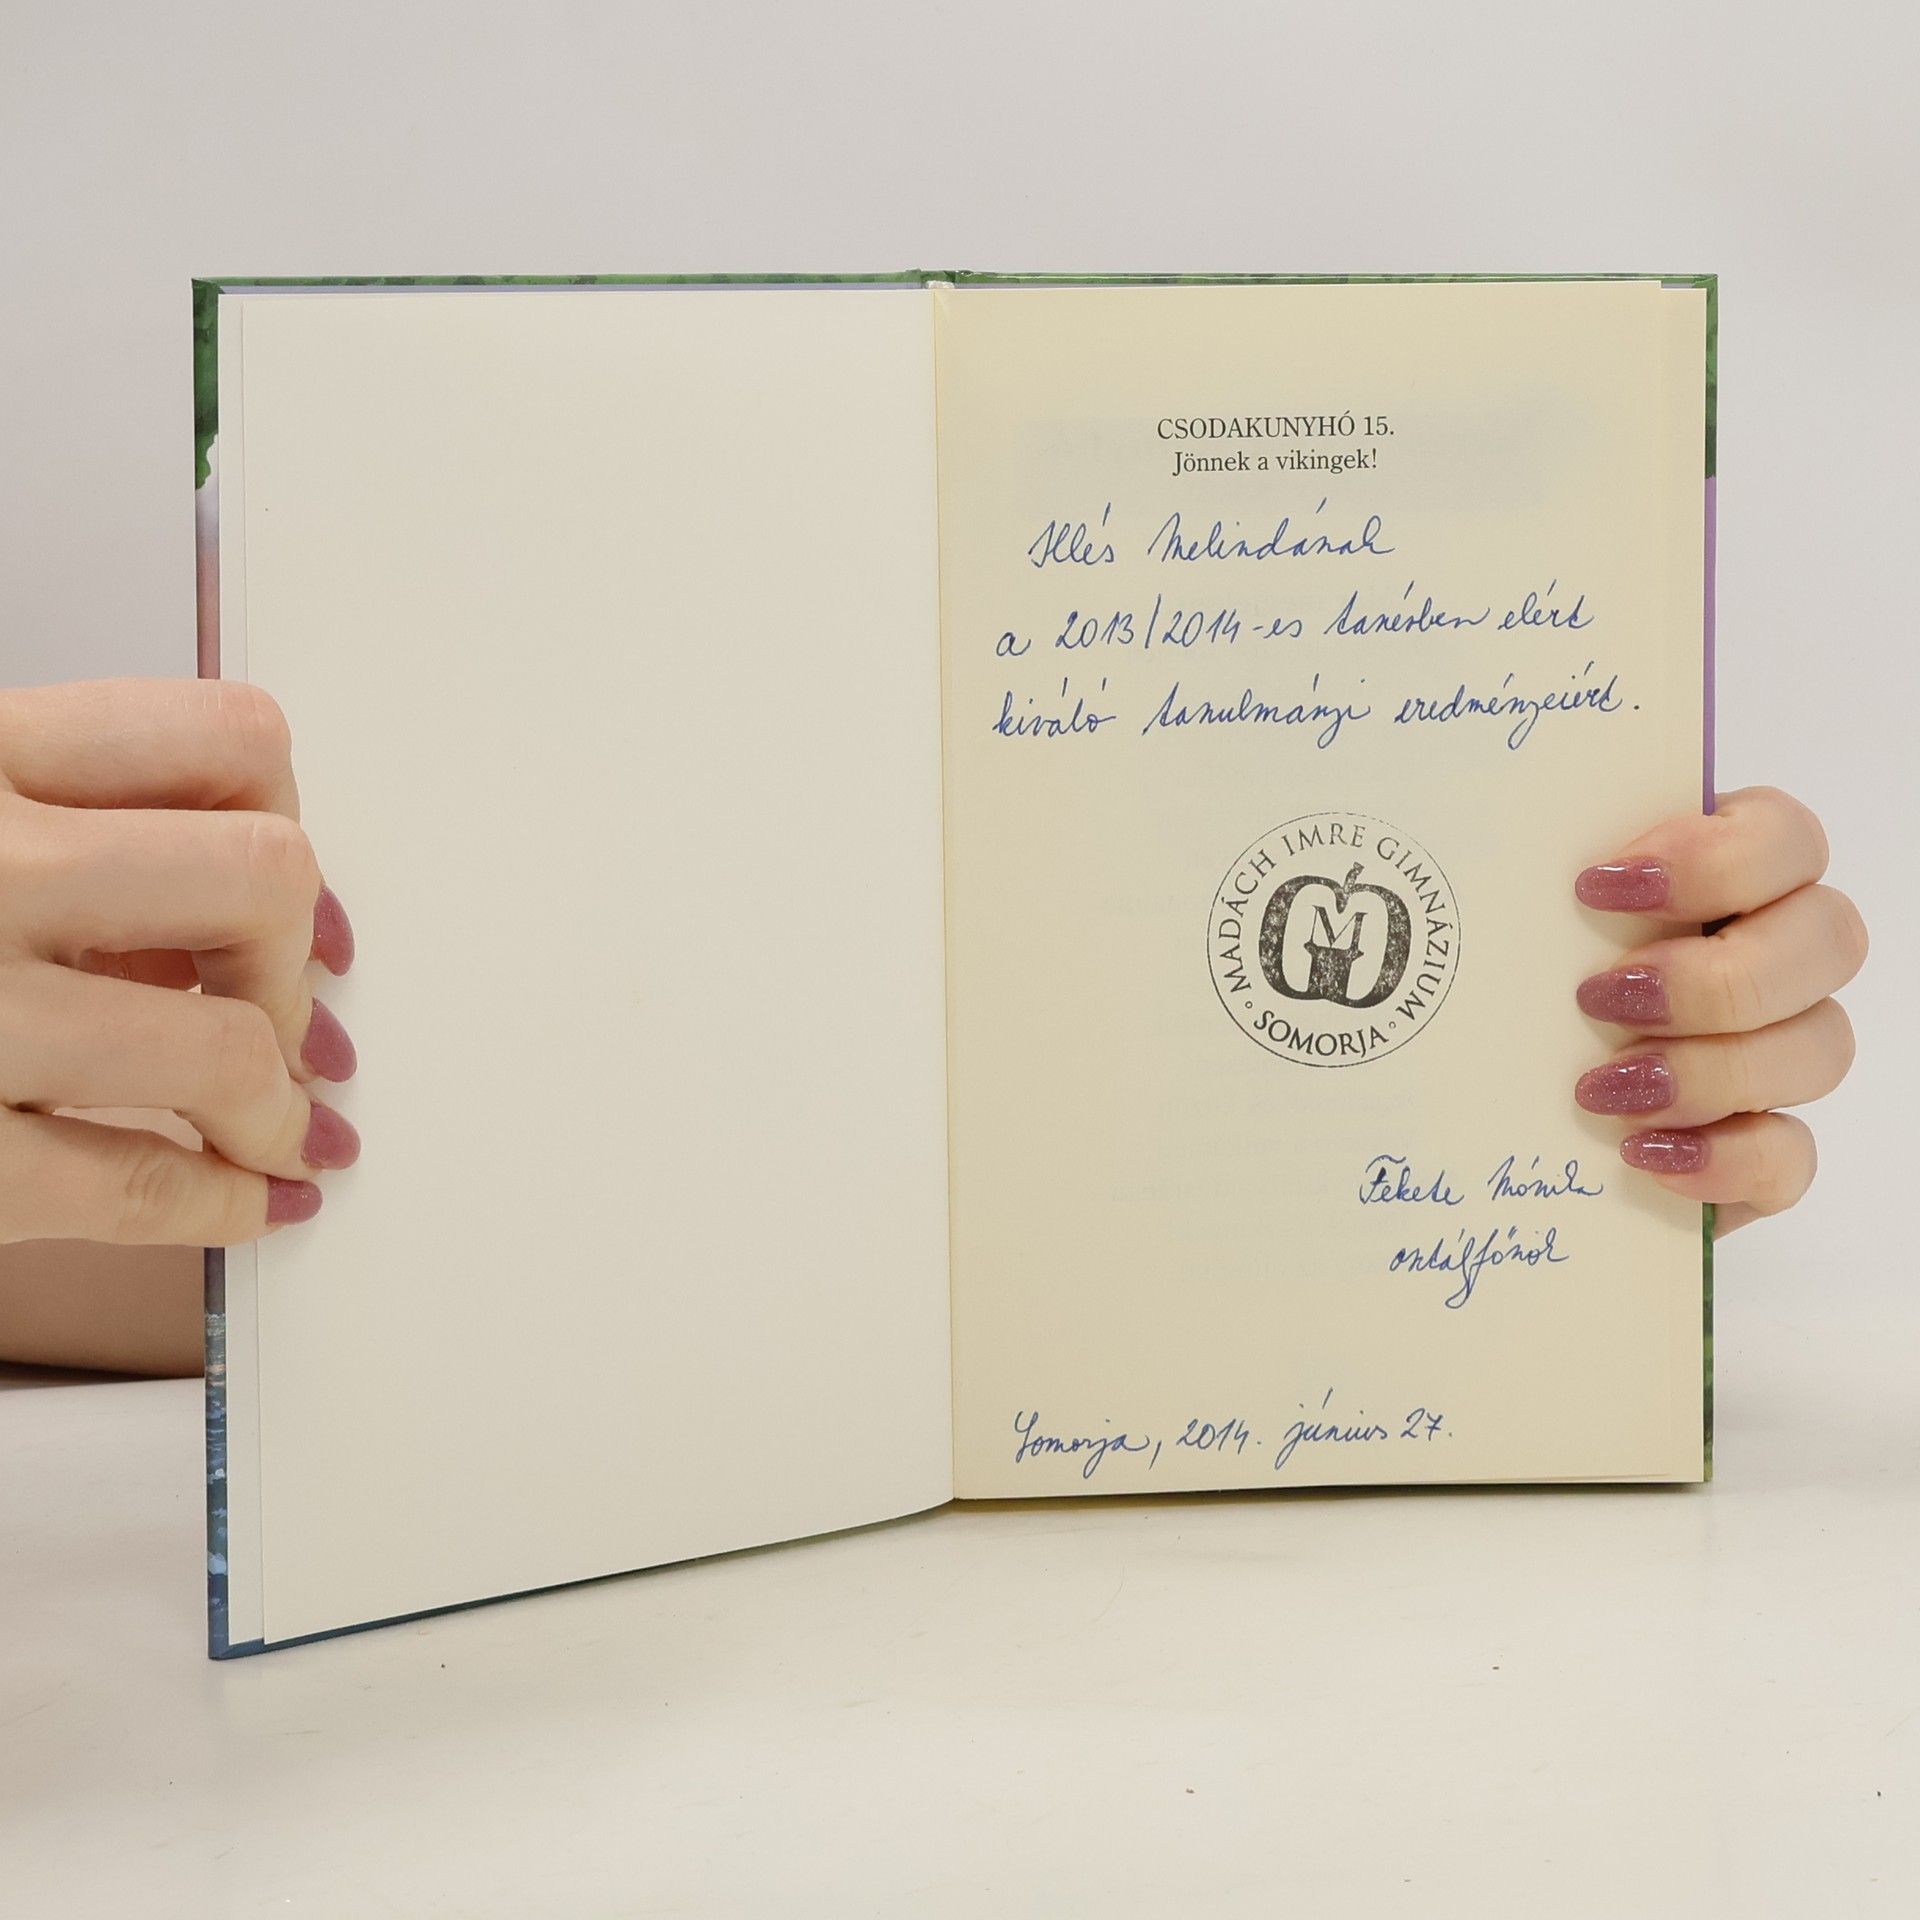 CSODAKUNYHÓ 15.
Jönnek a vikingek!
Illés Melindának
a 2013/2014-es tanévben elért
kiváló tanulmányi eredményeiért.
MADÁCH IMRE GIMNÁZIUM
M
SOMORJA
Fekete Mónika
osztályfőnök
Somorja, 2014. június 27.